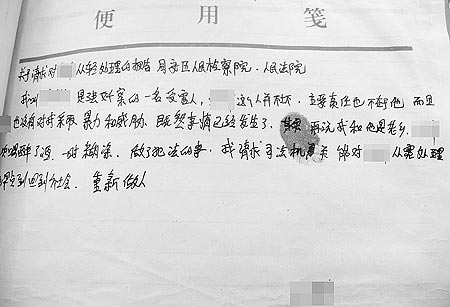 便用笺
关于请求对 从轻处理的报告 区人民检察院、人民法院
我叫 是强奸案的一名受害人, 这个人并不坏、主要责任也不在于他 而且
也没有对我采取暴力和威胁、既然事情已经发生了、 再说我和他是老乡、
喝醉了酒、一时糊涂、做了犯法的事、我请求司法机关 能对 从宽处理
回到社会、重新做人